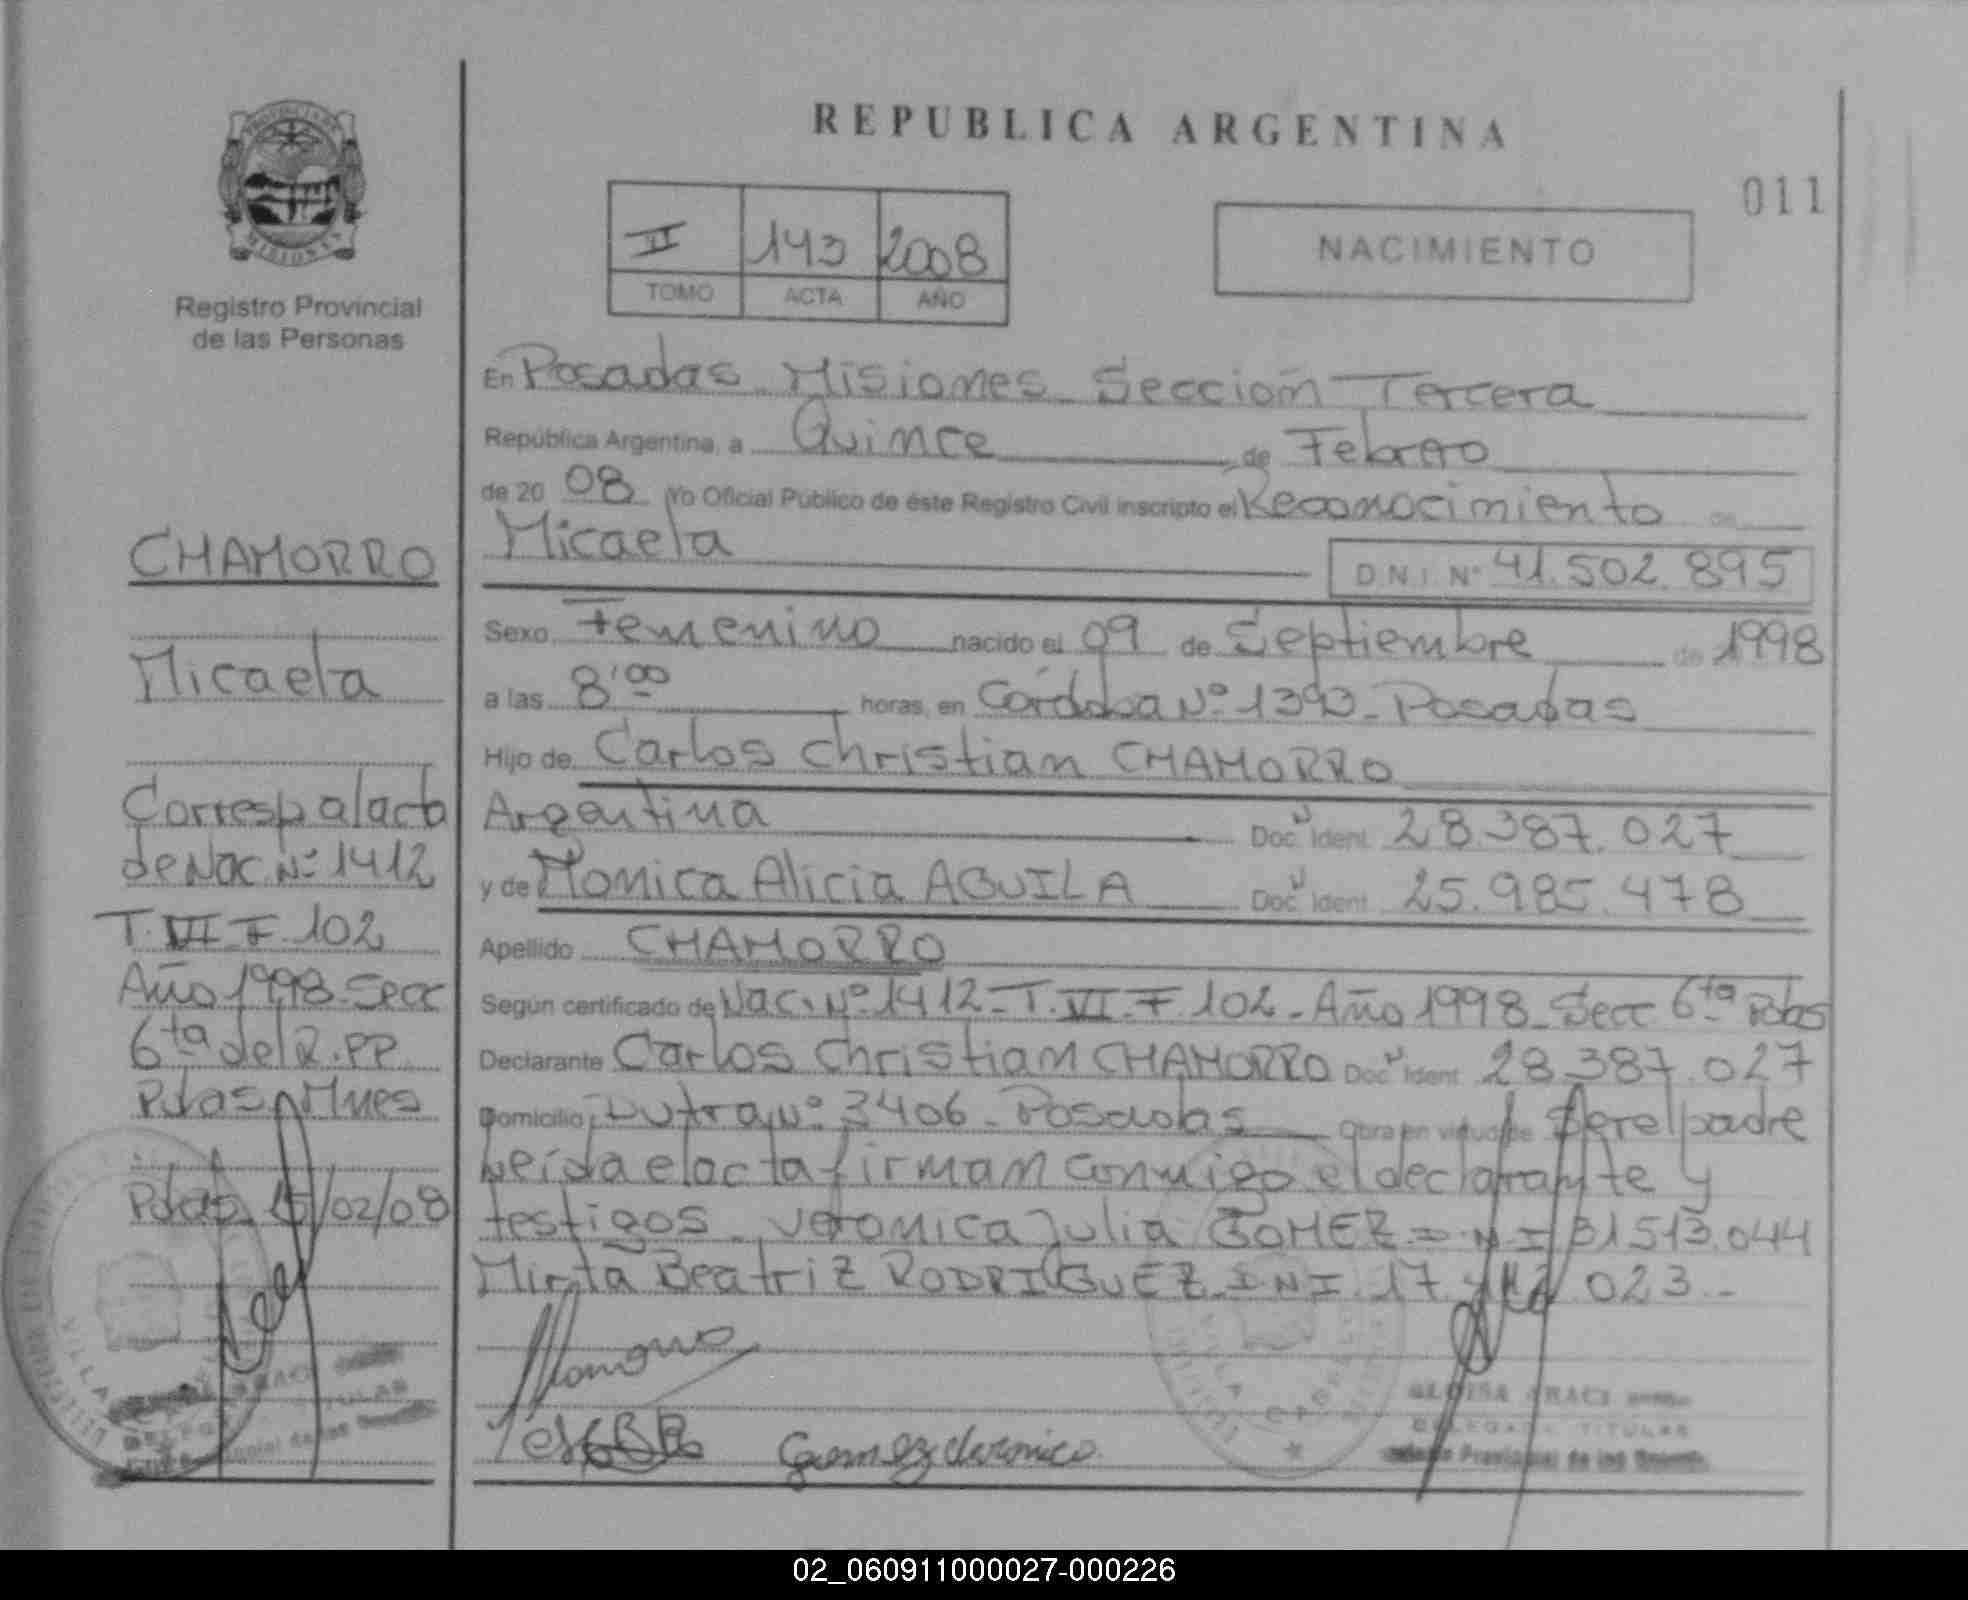 REPUBLICA ARGENTINA
011
II 143 2008
TOMO ACTA AÑO
NACIMIENTO
PROVINCIA DE
MISIONES
Registro Provincial
de las Personas
En Posadas Misiones Sección Tercera
República Argentina, a Quince de Febrero
de 20 08 Yo Oficial Público de éste Registro Civil inscripto el Reconocimiento de
Micaela D.N.I. Nº 41.502.895
Sexo Femenino nacido el 09 de Septiembre de 1998
a las 8'00 horas, en Córdoba Nº 1393 - Posadas
Hijo de Carlos Christian CHAMORRO
Argentina Doc. Ident. 28.387.027
y de Monica Alicia AGUILA Doc. Ident. 25.985.478
Apellido CHAMORRO
Según certificado de Nac. Nº 1412 - T. VI. F. 102 - Año 1998 - Secc 6ta Pdas
Declarante Carlos Christian CHAMORRO Doc. Ident. 28.387.027
Domicilio Dutra Nº 3406 - Posadas Obra en virtud de Ser el padre
Leída el acta firman conmigo el declarante y
testigos. Veronica Julia GOMEZ D.N.I 31513.044
Mirta Beatriz RODRIGUEZ D.N.I. 17. 023.-
Gomez Veronica
ARACI
DELEGADA TITULAR
Provincial de las
CHAMORRO
Micaela
Corresp al acta
de Nac. Nº 1412
T. VI F. 102
Año 1998 - Secc
6ta del R.PP.
Pdas Mnes
Pdas 15/02/08
TITULAR
02_060911000027-000226